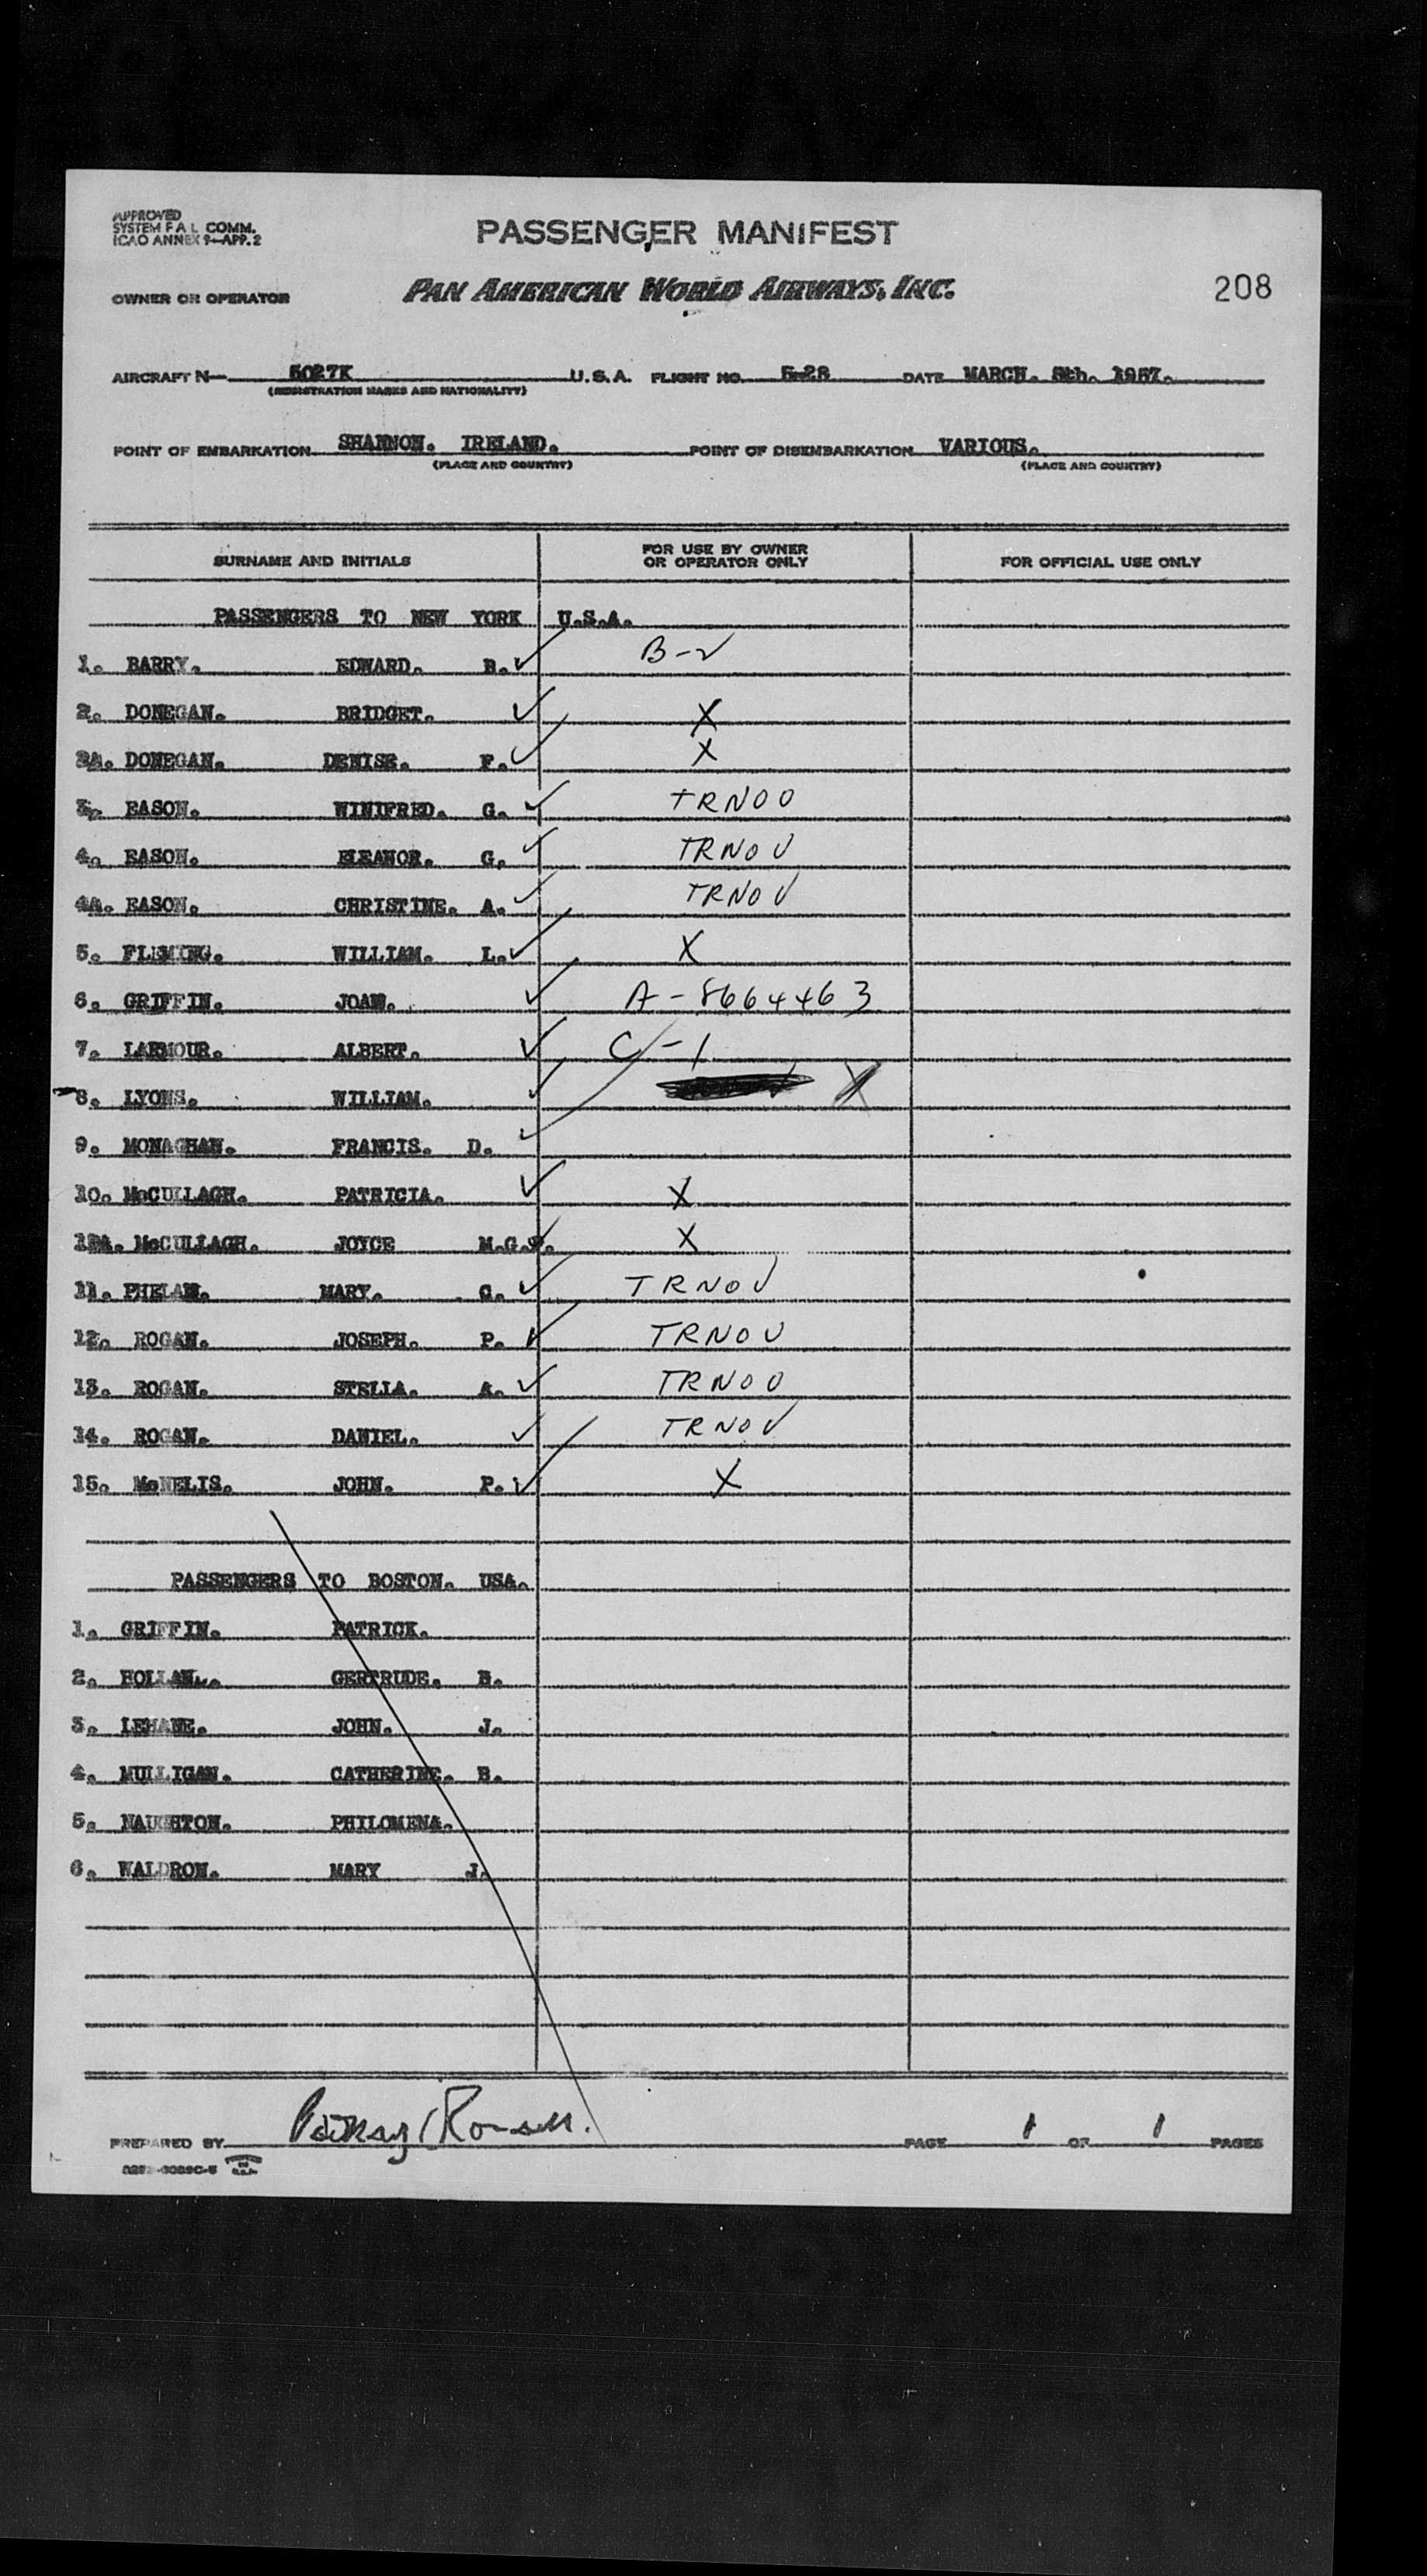 APPROVED
SYSTEM F A L COMM.
ICAO ANNEX 9-APP. 2
PASSENGER MANIFEST
OWNER OR OPERATOR PAN AMERICAN WORLD AIRWAYS, INC. 208
AIRCRAFT N— 5027K U.S.A. FLIGHT NO. DATE MARCH. 8th. 1957.
(REGISTRATION MARKS AND NATIONALITY)
POINT OF EMBARKATION SHANNON. IRELAND. POINT OF DISEMBARKATION VARIOUS.
(PLACE AND COUNTRY) (PLACE AND COUNTRY)
SURNAME AND INITIALS FOR USE BY OWNER OR OPERATOR ONLY FOR OFFICIAL USE ONLY
PASSENGERS TO NEW YORK U.S.A.
1. BARRY. EDWARD. B. ✓ B-2
2. DONEGAN. BRIDGET. ✓ X
2A. DONEGAN. DENISE. F. ✓ X
3. EASON. WINIFRED. G. ✓ TRNOV
4. EASON. ELEANOR. G. ✓ TRNOV
4A. EASON. CHRISTINE. A. ✓ TRNOV
5. FLEMING. WILLIAM. L. ✓ X
6. GRIFFIN. JOAN. ✓ A-8664463
7. LARMOUR. ALBERT. ✓ C-1
8. LYONS. WILLIAM. ✓ X
9. MONAGHAN. FRANCIS. D. ✓
10. McCULLAGH. PATRICIA. ✓ X
10A. McCULLAGH. JOYCE M.G. ✓ X
11. PHELAN. MARY. C. ✓ TRNOV
12. ROGAN. JOSEPH. P. ✓ TRNOV
13. ROGAN. STELLA. A. ✓ TRNOV
14. ROGAN. DANIEL. ✓ TRNOV
15. McNELIS. JOHN. P. ✓ X
PASSENGERS TO BOSTON. USA.
1. GRIFFIN. PATRICK.
2. GERTRUDE. B.
3. LEHANE. JOHN. J.
4. MULLIGAN. CATHERINE. B.
5. NAUGHTON. PHILOMENA.
6. WALDRON. MARY J.
PREPARED BY PAGE 1 OF 1 PAGES